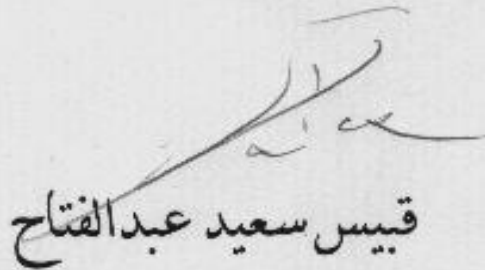 قبيس سعيد عبدالفتاح